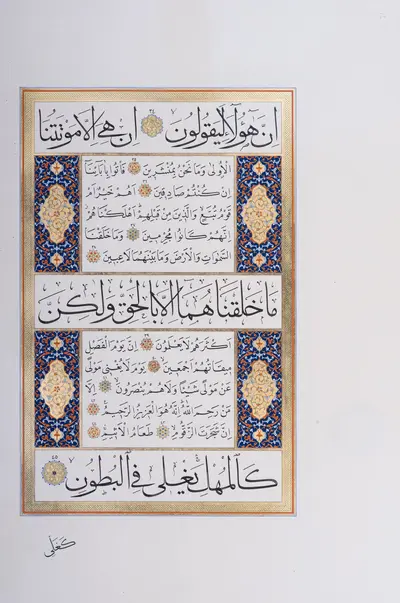 اِنَّ هٰٓؤُلَاءِ لَيَقُولُونَ ٣٤ اِنْ هِيَ اِلَّا مَوْتَتُنَا
الْاُولٰى وَمَا نَحْنُ بِمُنْشَرِينَ ٣٥ فَاْتُوا بِاٰبَٓائِنَٓا
اِنْ كُنْتُمْ صَادِقِينَ ٣٦ اَهُمْ خَيْرٌ اَمْ
قَوْمُ تُبَّعٍ وَالَّذِينَ مِنْ قَبْلِهِمْ اَهْلَكْنَاهُمْ
اِنَّهُمْ كَانُوا مُجْرِمِينَ ٣٧ وَمَا خَلَقْنَا
السَّمٰوَاتِ وَالْاَرْضَ وَمَا بَيْنَهُمَا لَاعِبِينَ ٣٨
مَا خَلَقْنَاهُمَٓا اِلَّا بِالْحَقِّ وَلٰكِنَّ
اَكْثَرَهُمْ لَا يَعْلَمُونَ ٣٩ اِنَّ يَوْمَ الْفَصْلِ
مِيقَاتُهُمْ اَجْمَعِينَ ٤٠ يَوْمَ لَا يُغْنِي مَوْلًى
عَنْ مَوْلًى شَيْـًٔا وَلَا هُمْ يُنْصَرُونَ ٤١ اِلَّا
مَنْ رَحِمَ اللّٰهُ اِنَّهُ هُوَ الْعَزِيزُ الرَّحِيمُ ٤٢
اِنَّ شَجَرَتَ الزَّقُّومِ ٤٣ طَعَامُ الْاَثِيمِ ٤٤
كَالْمُهْلِ يَغْلِي فِي الْبُطُونِ ٤٥
كَغَلْيِ